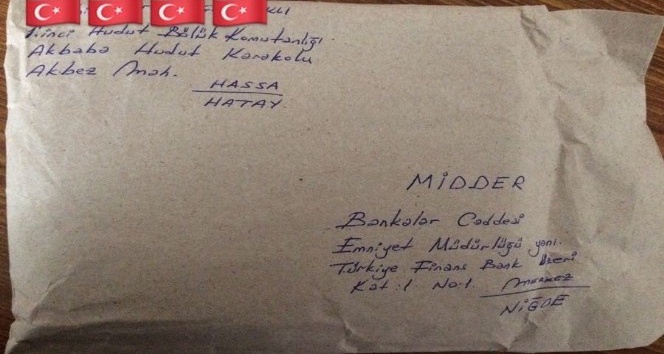 İkinci Hudut Bölük Komutanlığı
Akbaba Hudut Karakolu
Akbez Mah.
HASSA
HATAY
MİDDER
Bankalar Caddesi
Emniyet Müdürlüğü yanı.
Türkiye Finans Bank üzeri
Kat:1 No:1. MERKEZ
NİĞDE